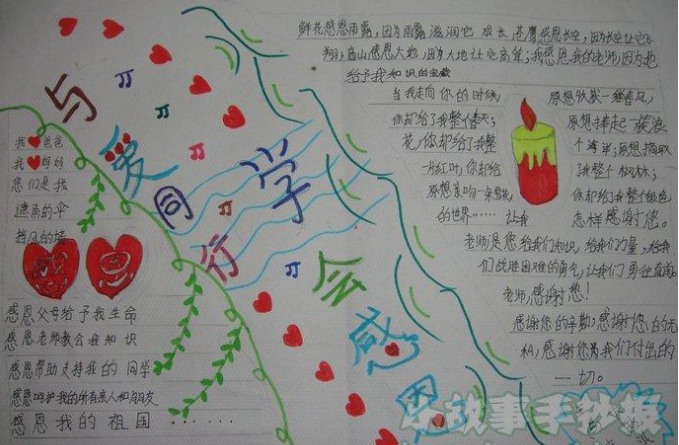 与爱同行
学会感恩
我 爸爸
我 妈妈
您们是我
遮雨的伞
挡风的墙
感恩父母给予我生命
感恩老师教会我知识
感恩帮助支持我的同学
感恩呵护我的所有亲人和朋友
感恩我的祖国……
鲜花感恩雨露,因为雨露滋润它成长,苍鹰感恩长空,因为长空让它飞
翔;高山感恩大地,因为大地让它高耸;我感恩我的老师,因为她
给予我知识的宝藏
当我走向你的时候, 原想收获一缕春风,
你却给了我整个春天; 原想捧起一簇浪
花,你却给了我整个海洋;原想撷取
一片红叶,你却给了我整个枫林;
原想亲吻一朵雪花 你却给了我整个银色
的世界…… 让我怎样感谢您。
老师是您给我们知识,给我们力量,给我
们战胜困难的勇气,让我们勇往直前,
老师,感谢您!
感谢您的辛勤;感谢您的无
私;感谢您为我们付出的
一切。
小故事手抄报